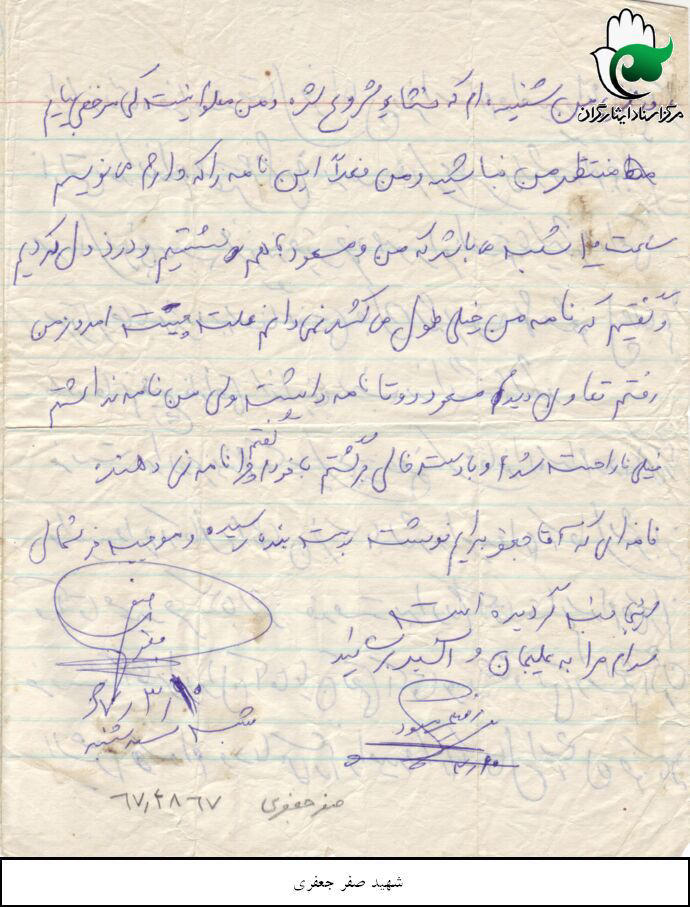 مرکز اسناد ایثارگران
من شنیده ام که شروع شده و من معلوم نیست کی مرخصی بیایم
منتظر من نباشید و من فعلاً این نامه را که دارم می نویسم
ساعت شب می باشد که من و مسعود با هم نشستیم و درد دل کردیم
و گفتیم که نامه من خیلی طول می کشد نمی دانم علت چیست امروز من
رفتم تعاون دیدم مسعود دو تا نامه داشت ولی من نامه نداشتم
خیلی ناراحت شدم و با دست خالی برگشتم با خود گفتم چرا نامه نمی دهند
نامه ای که آقا جعفر برایم نوشت بدست بنده رسیده و موجب خوشحالی
اینجانب گردیده است
سلام مرا به علیجان و برسانید
صفر
جعفری
مسعود
۶۷/۳/۱۰
شب سه شنبه
صفر جعفری ۶۷,۴۸۶۷
شهید صفر جعفری